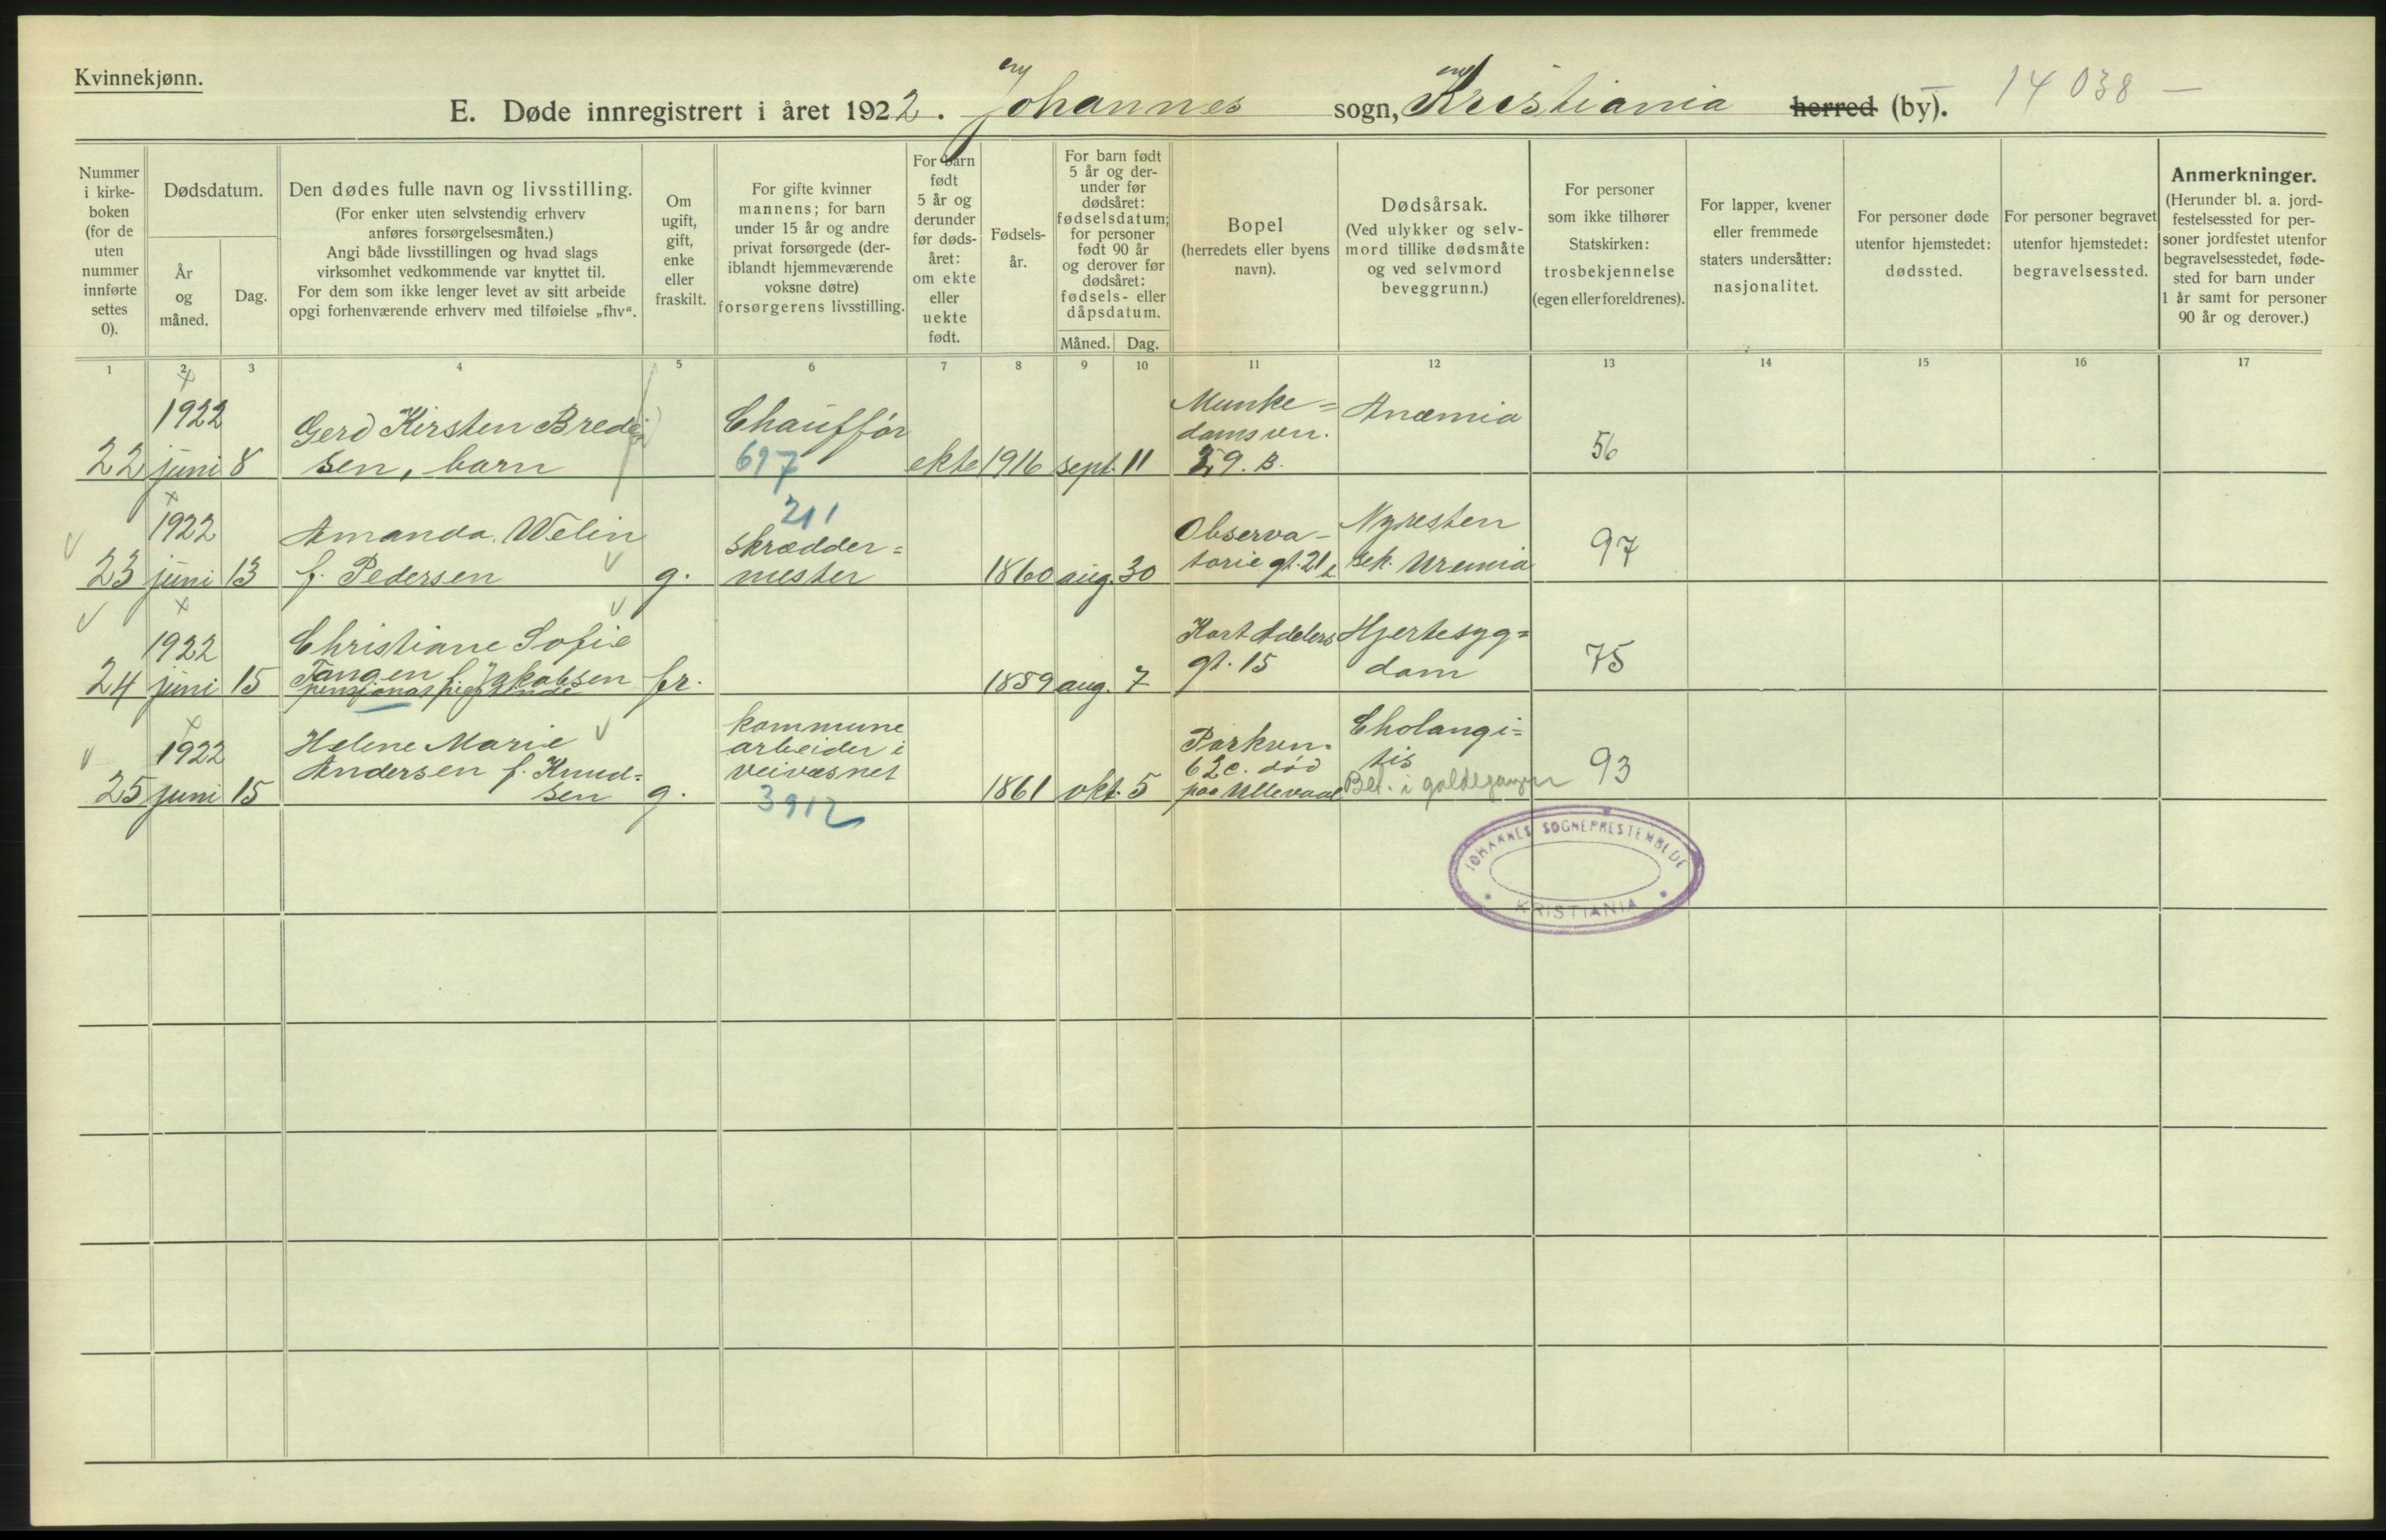 Kvinnekjønn.
E. Døde innregistrert i året 1922. Johannes sogn, Kristiania herred (by). 14 038 —
Nummer
i kirke-
boken
(for de
uten
nummer
innførte
settes
0).
Dødsdatum.
År
og
måned.
Dag.
Den dødes fulle navn og livsstilling.
(For enker uten selvstendig erhverv
anføres forsørgelsesmåten.)
Angi både livsstillingen og hvad slags
virksomhet vedkommende var knyttet til.
For dem som ikke lenger levet av sitt arbeide
opgi forhenværende erhverv med tilføielse „fhv“.
Om
ugift,
gift,
enke
eller
fraskilt.
For gifte kvinner
mannens; for barn
under 15 år og andre
privat forsørgede (der-
iblandt hjemmeværende
voksne døtre)
forsørgerens livsstilling.
For barn
født
5 år og
derunder
før døds-
året:
om ekte
eller
uekte
født.
Fødsels-
år.
For barn født
5 år og der-
under før
dødsåret:
fødselsdatum;
for personer
født 90 år
og derover før
dødsåret:
fødsels- eller
dåpsdatum.
Måned.
Dag.
Bopel
(herredets eller byens
navn).
Dødsårsak.
(Ved ulykker og selv-
mord tillike dødsmåte
og ved selvmord
beveggrunn.)
For personer
som ikke tilhører
Statskirken:
trosbekjennelse
(egen eller foreldrenes).
For lapper, kvener
eller fremmede
staters undersåtter:
nasjonalitet.
For personer døde
utenfor hjemstedet:
dødssted.
For personer begravet
utenfor hjemstedet:
begravelsessted.
Anmerkninger.
(Herunder bl. a. jord-
festelsessted for per-
soner jordfestet utenfor
begravelsesstedet, føde-
sted for barn under
1 år samt for personer
90 år og derover.)
1 2 3 4 5 6 7 8 9 10 11 12 13 14 15 16 17
22
1922
juni
8
Gerd Kirsten Bredе-
sen, barn
Chauffør
697
ekte
1916
sept.
11
Munke=
damsvn.
29. B.
Anæmia
56
23
1922
juni
13
Amanda Welin
f. Pedersen
g.
211
skrædder=
mester
1860
aug.
30
Observa-
torie gt. 21
Nyresten
sek. Uremia
97
24
1922
juni
15
Christiane Sofie
Tangen f. Jakobsen
fr.
1859
aug.
7
Kort Adelers
gt. 15
Hjertesyg=
dom
75
25
1922
juni
15
Helene Marie
Andersen f. Knud=
sen
g.
kommune
arbeider i
veivæsnet
3912
1861
okt.
5
Parkvn.
62c. død
paa Ullevaal
Cholangi=
tis
Bet. i galdegangen
93
JOHANNES SOGNEPRESTEMBEDE
KRISTIANIA